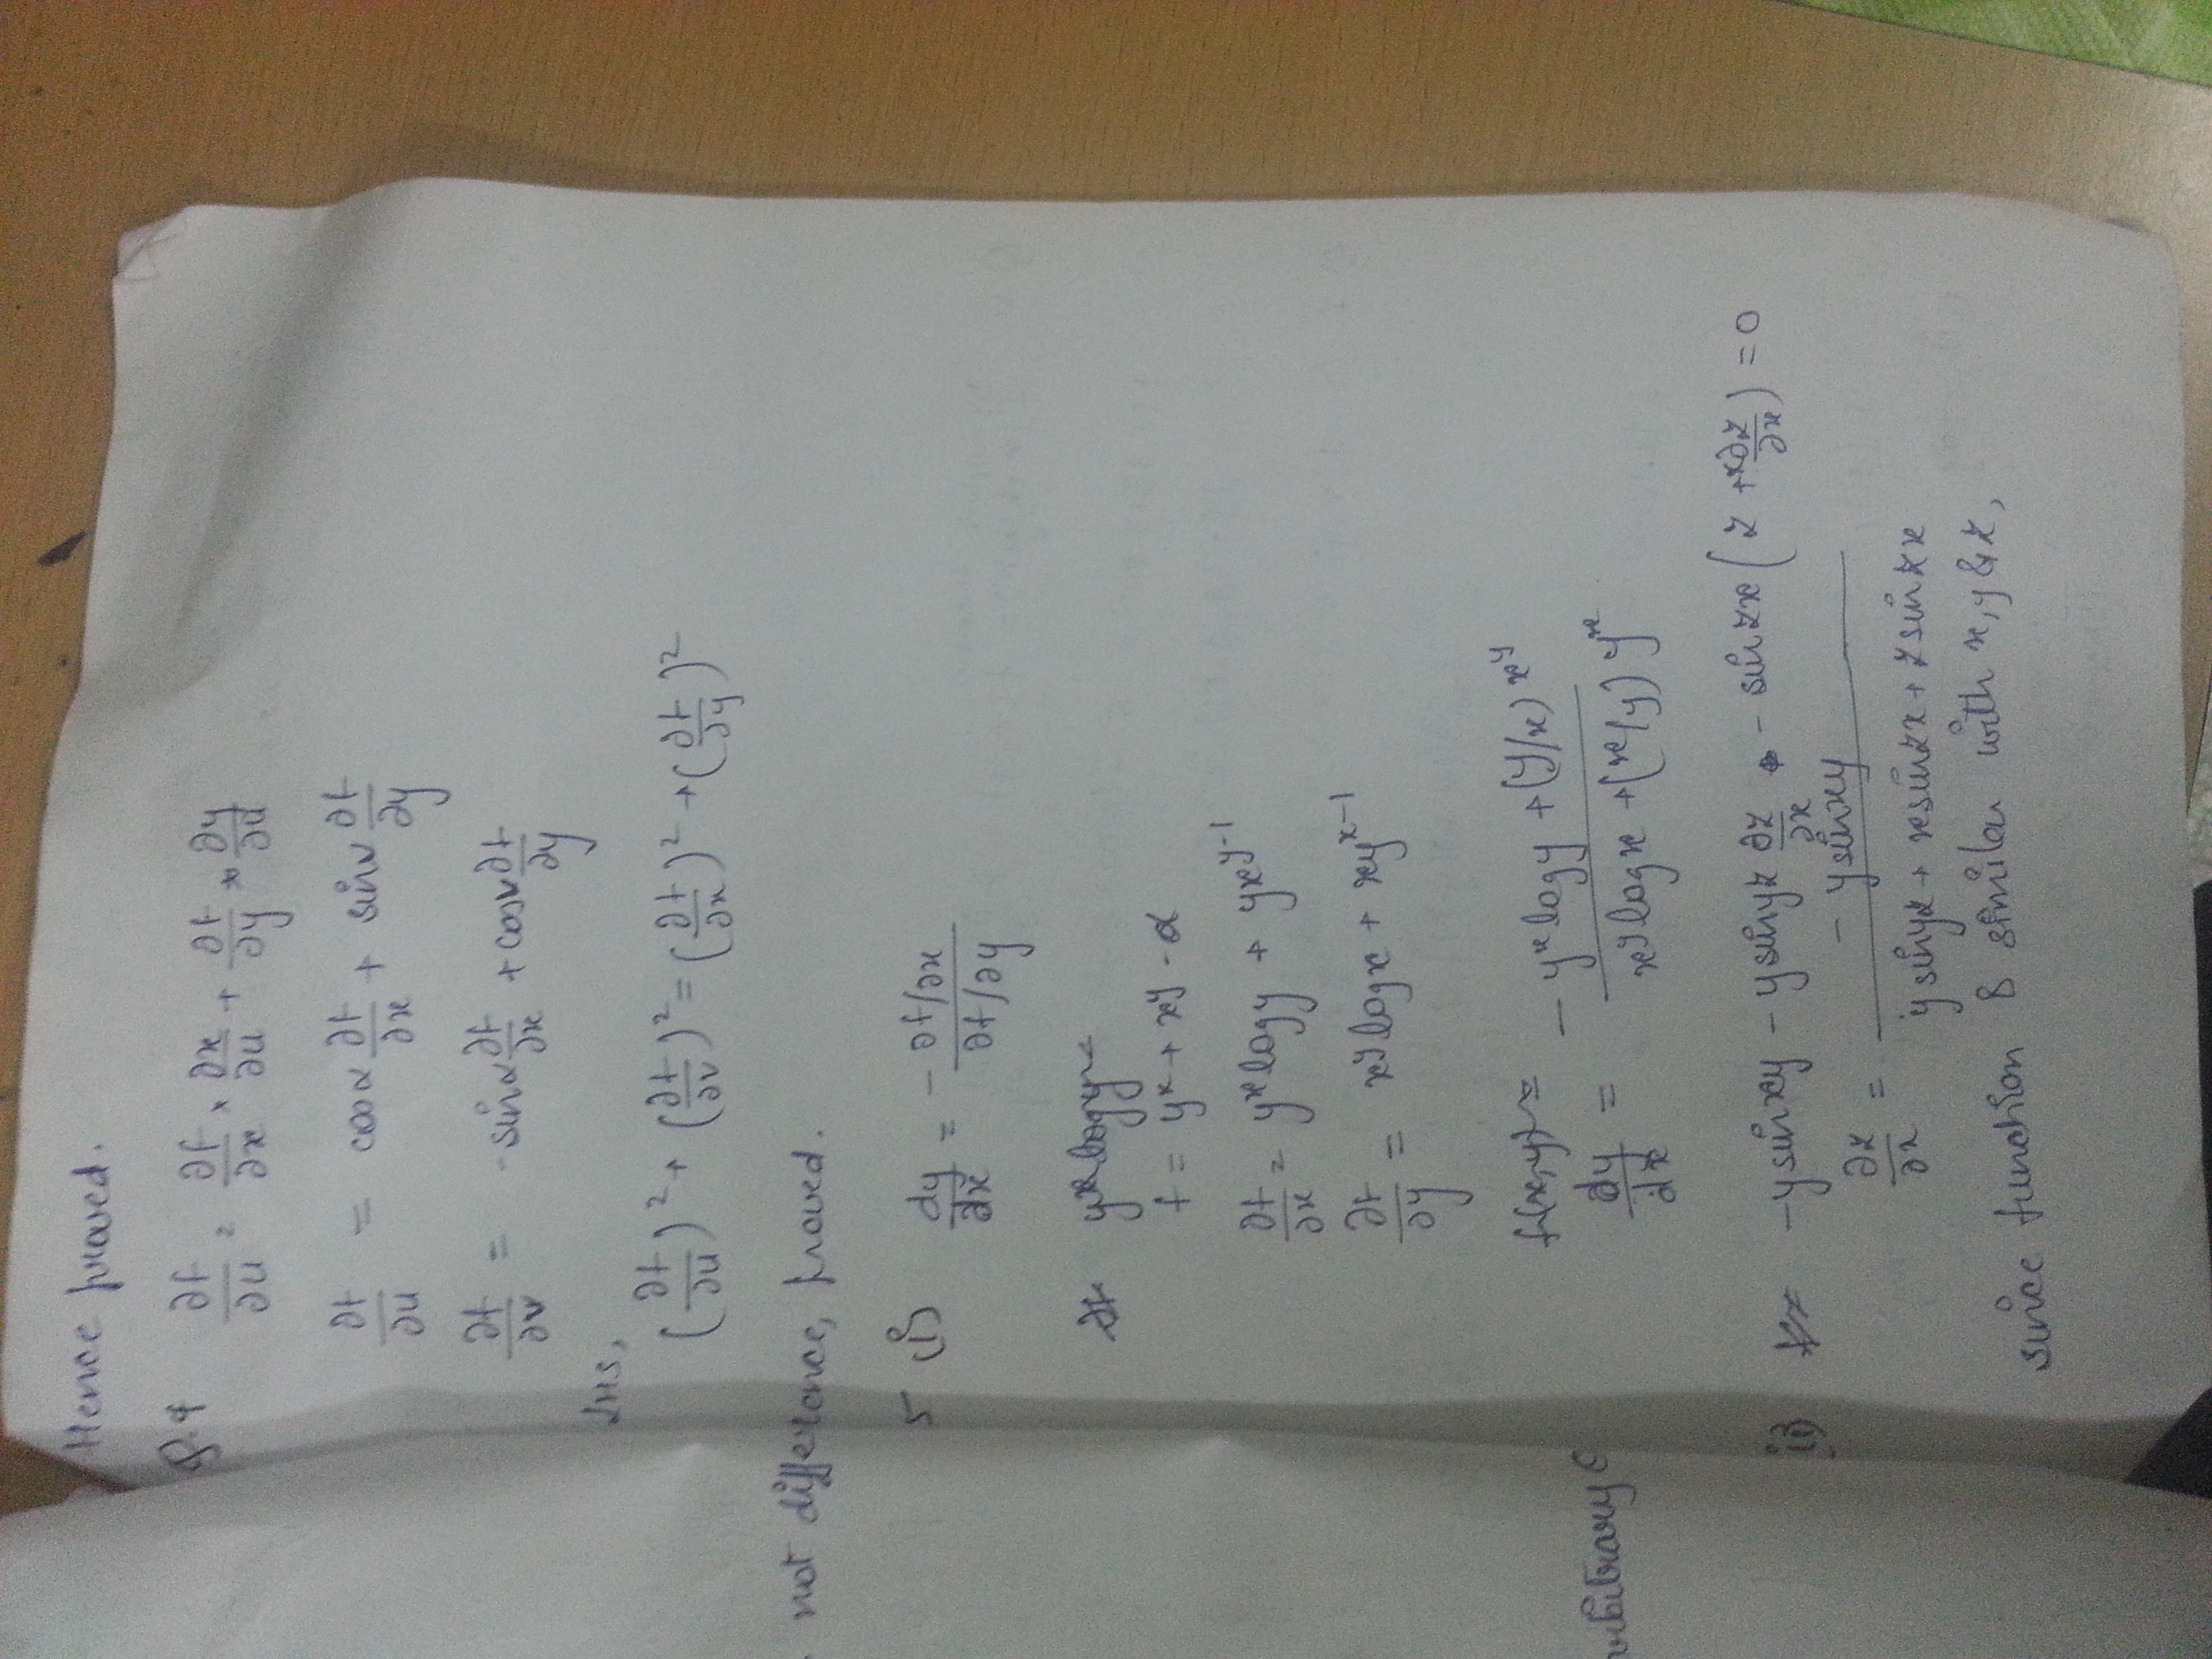 Hence proved.
Q.4 ∂f/∂u = ∂f/∂x × ∂x/∂u + ∂f/∂y × ∂y/∂u
∂f/∂u = cosα ∂f/∂x + sinα ∂f/∂y
∂f/∂v = -sinα ∂f/∂x + cosα ∂f/∂y
LHS,
(∂f/∂u)² + (∂f/∂v)² = (∂f/∂x)² + (∂f/∂y)²
not difference, proved.
5 (i) dy/dx = - ∂f/∂x / ∂f/∂y
yˣ log y =
f = yˣ + xʸ - α
∂f/∂x = yˣ log y + yx^(y-1)
∂f/∂y = xʸ log x + xy^(x-1)
f(x,y) =
dy/dx = - yˣ log y + (y/x) xʸ / xʸ log x + (x/y) yˣ
arbitrary
(ii) -y sin xy - y sin yz ∂z/∂x - sin zx (z + x∂z/∂x) = 0
∂z/∂x = - y sin xy / y sin yz + x sin zx + z sin zx
since function is similar with x, y & z,